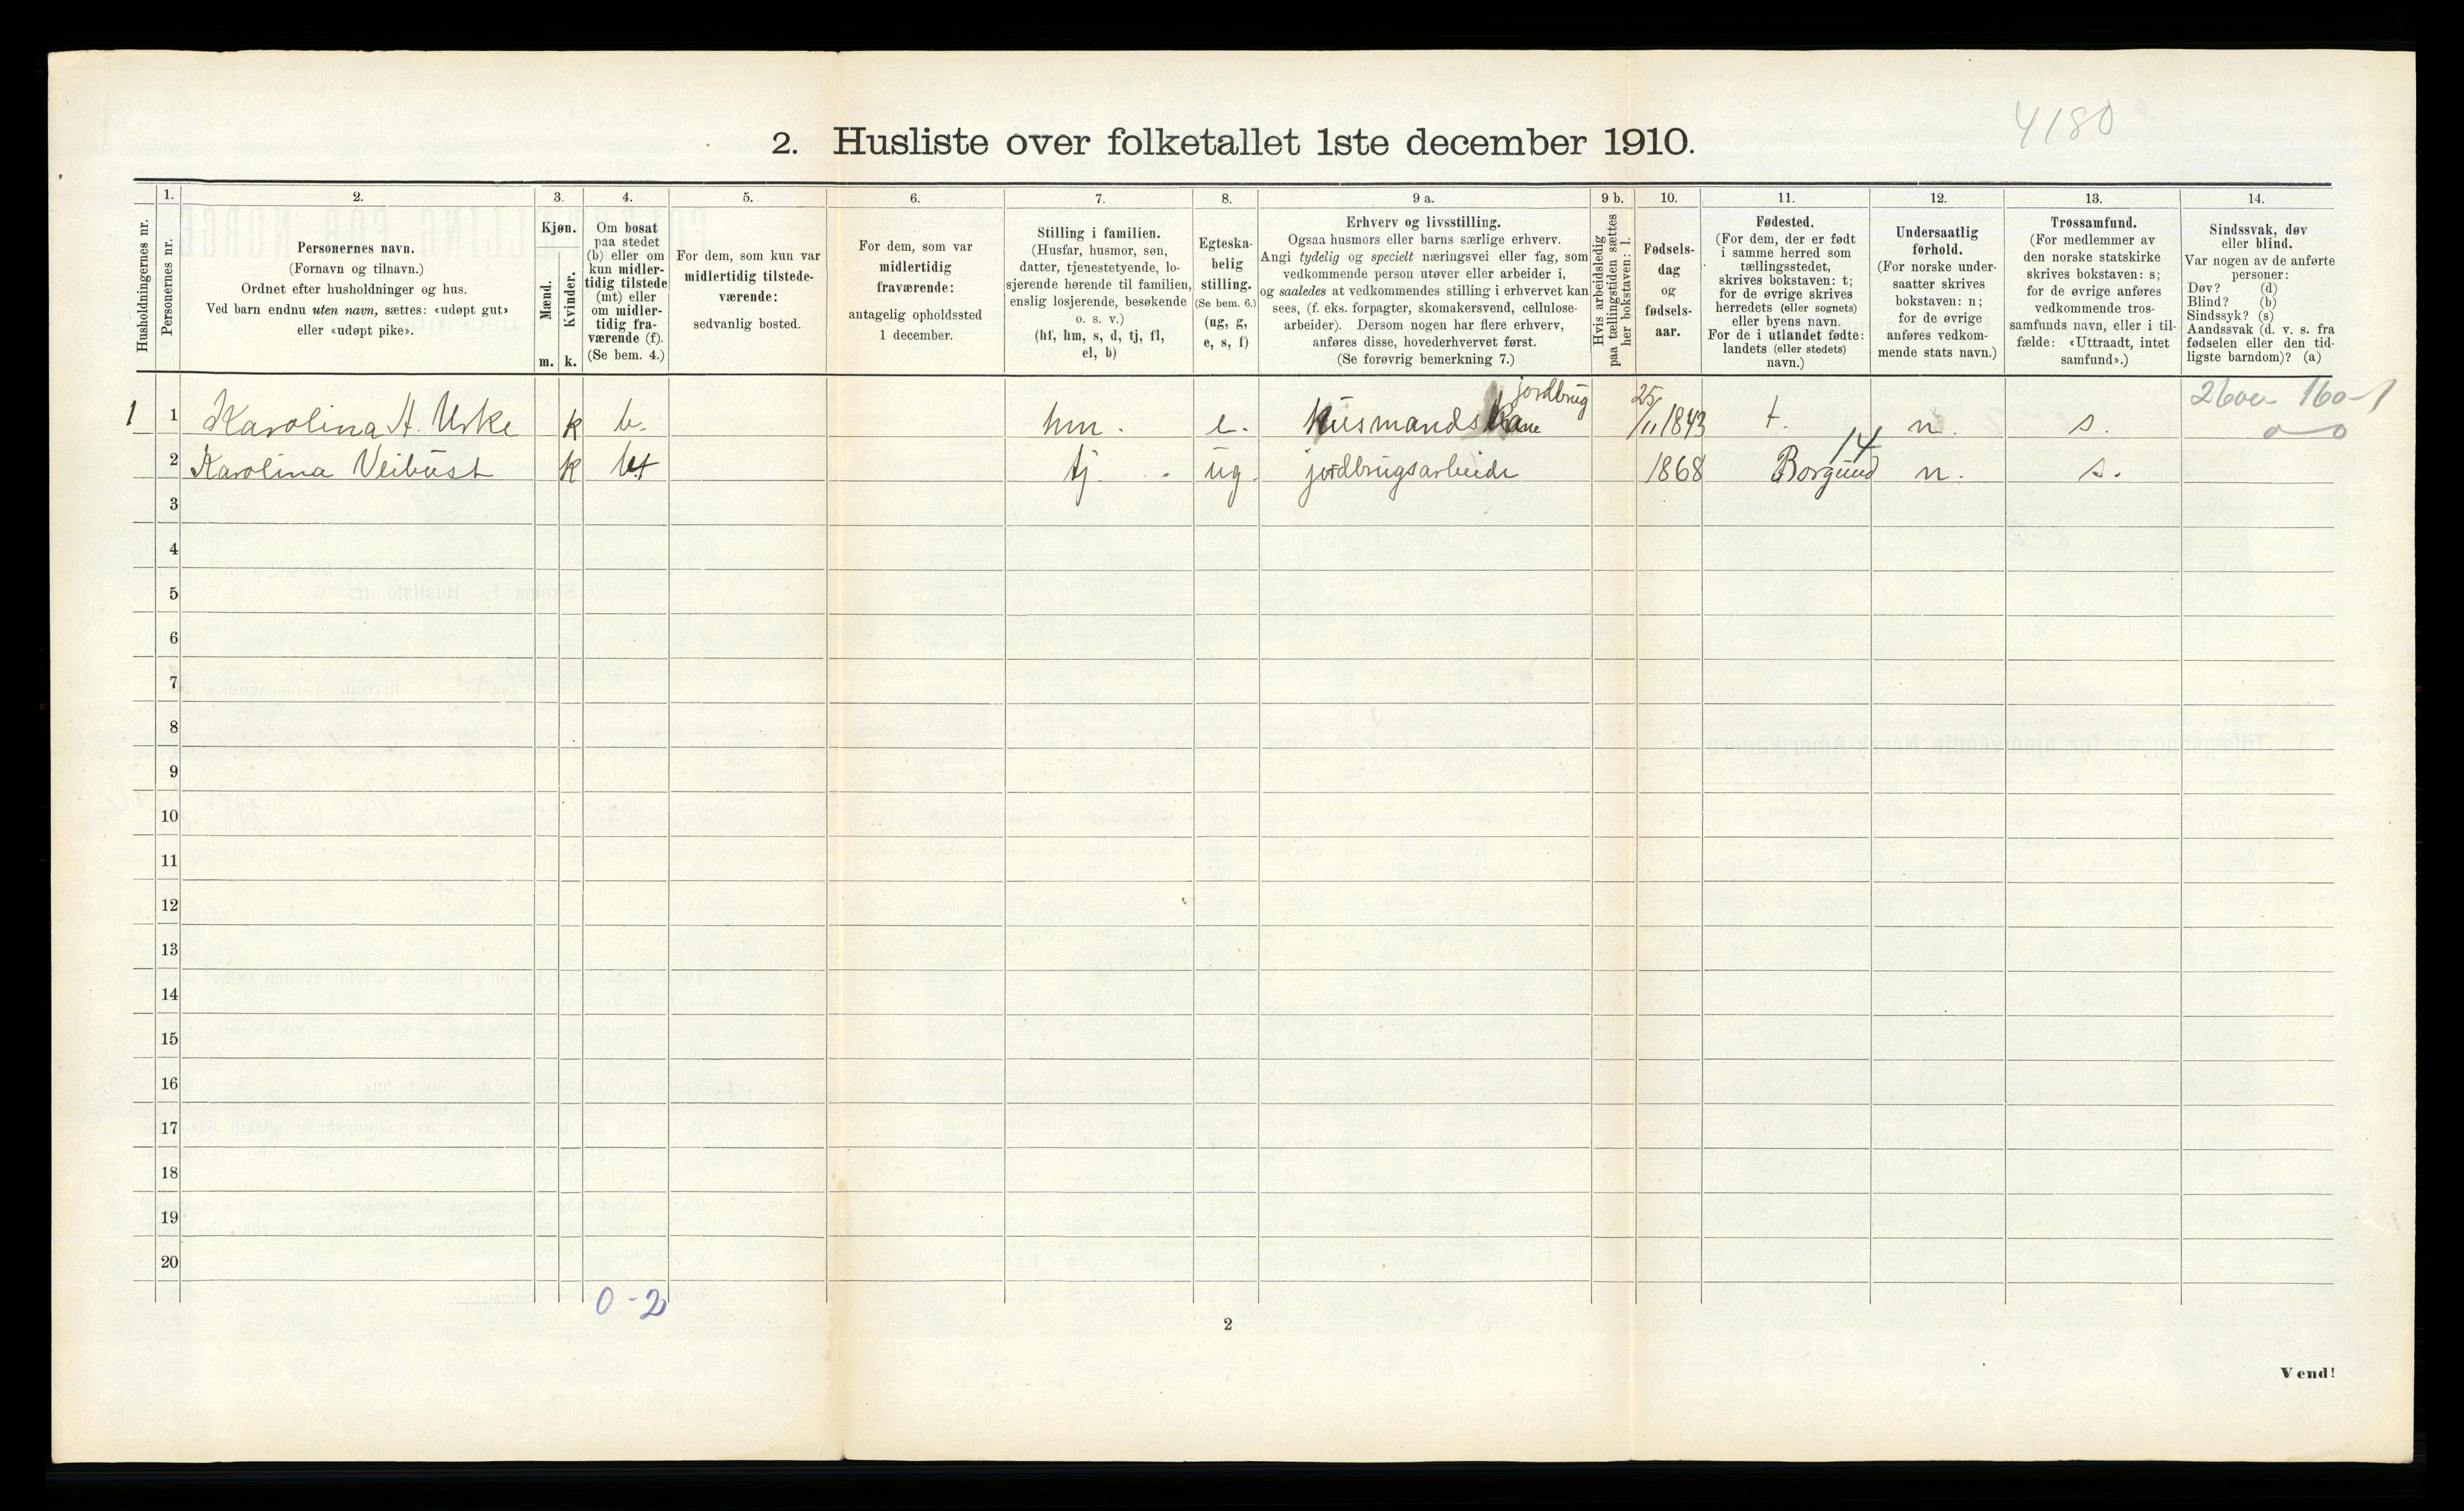 4180
2. Husliste over folketallet 1ste december 1910.
Husholdningernes nr.
1.
Personernes nr.
2.
Personernes navn.
(Fornavn og tilnavn.)
Ordnet efter husholdninger og hus.
Ved barn endnu uten navn, sættes: «udøpt gut»
eller «udøpt pike».
3.
Kjøn.
Mænd.
Kvinder.
m. k.
4.
Om bosat
paa stedet
(b) eller om
kun midler-
tidig tilstede
(mt) eller
om midler-
tidig fra-
værende (f).
(Se bem. 4.)
5.
For dem, som kun var
midlertidig tilstede-
værende:
sedvanlig bosted.
6.
For dem, som var
midlertidig
fraværende:
antagelig opholdssted
1 december.
7.
Stilling i familien.
(Husfar, husmor, søn,
datter, tjenestetyende, lo-
sjerende hørende til familien,
enslig losjerende, besøkende
o. s. v.)
(hf, hm, s, d, tj, fl,
el, b)
8.
Egteska-
belig
stilling.
(Se bem. 6.)
(ug, g,
e, s, f)
9 a.
Erhverv og livsstilling.
Ogsaa husmors eller barns særlige erhverv.
Angi tydelig og specielt næringsvei eller fag, som
vedkommende person utøver eller arbeider i,
og saaledes at vedkommendes stilling i erhvervet kan
sees, (f. eks. forpagter, skomakersvend, cellulose-
arbeider). Dersom nogen har flere erhverv,
anføres disse, hovederhvervet først.
(Se forøvrig bemerkning 7.)
9 b.
Hvis arbeidsledig
paa tællingstiden sættes
her bokstaven: l.
10.
Fødsels-
dag
og
fødsels-
aar.
11.
Fødested.
(For dem, der er født
i samme herred som
tællingsstedet,
skrives bokstaven: t;
for de øvrige skrives
herredets (eller sognets)
eller byens navn.
For de i utlandet fødte:
landets (eller stedets)
navn.)
12.
Undersaatlig
forhold.
(For norske under-
saatter skrives
bokstaven: n;
for de øvrige
anføres vedkom-
mende stats navn.)
13.
Trossamfund.
(For medlemmer av
den norske statskirke
skrives bokstaven: s;
for de øvrige anføres
vedkommende tros-
samfunds navn, eller i til-
fælde: «Uttraadt, intet
samfund».)
14.
Sindssvak, døv
eller blind.
Var nogen av de anførte
personer:
Døv? (d)
Blind? (b)
Sindssyk? (s)
Aandssvak (d. v. s. fra
fødselen eller den tid-
ligste barndom)? (a)
jordbrug
1 1 Karolina A. Urke k b. hm. e. Husmandskane 25/11 1843 t. n. s.
14
2 Karolina Veibust k bt tj. ug. jordbrugsarbeide 1868 Borgund n. s.
3
4
5
6
7
8
9
10
11
12
13
14
15
16
17
18
19
20
0-2
2
Vend!